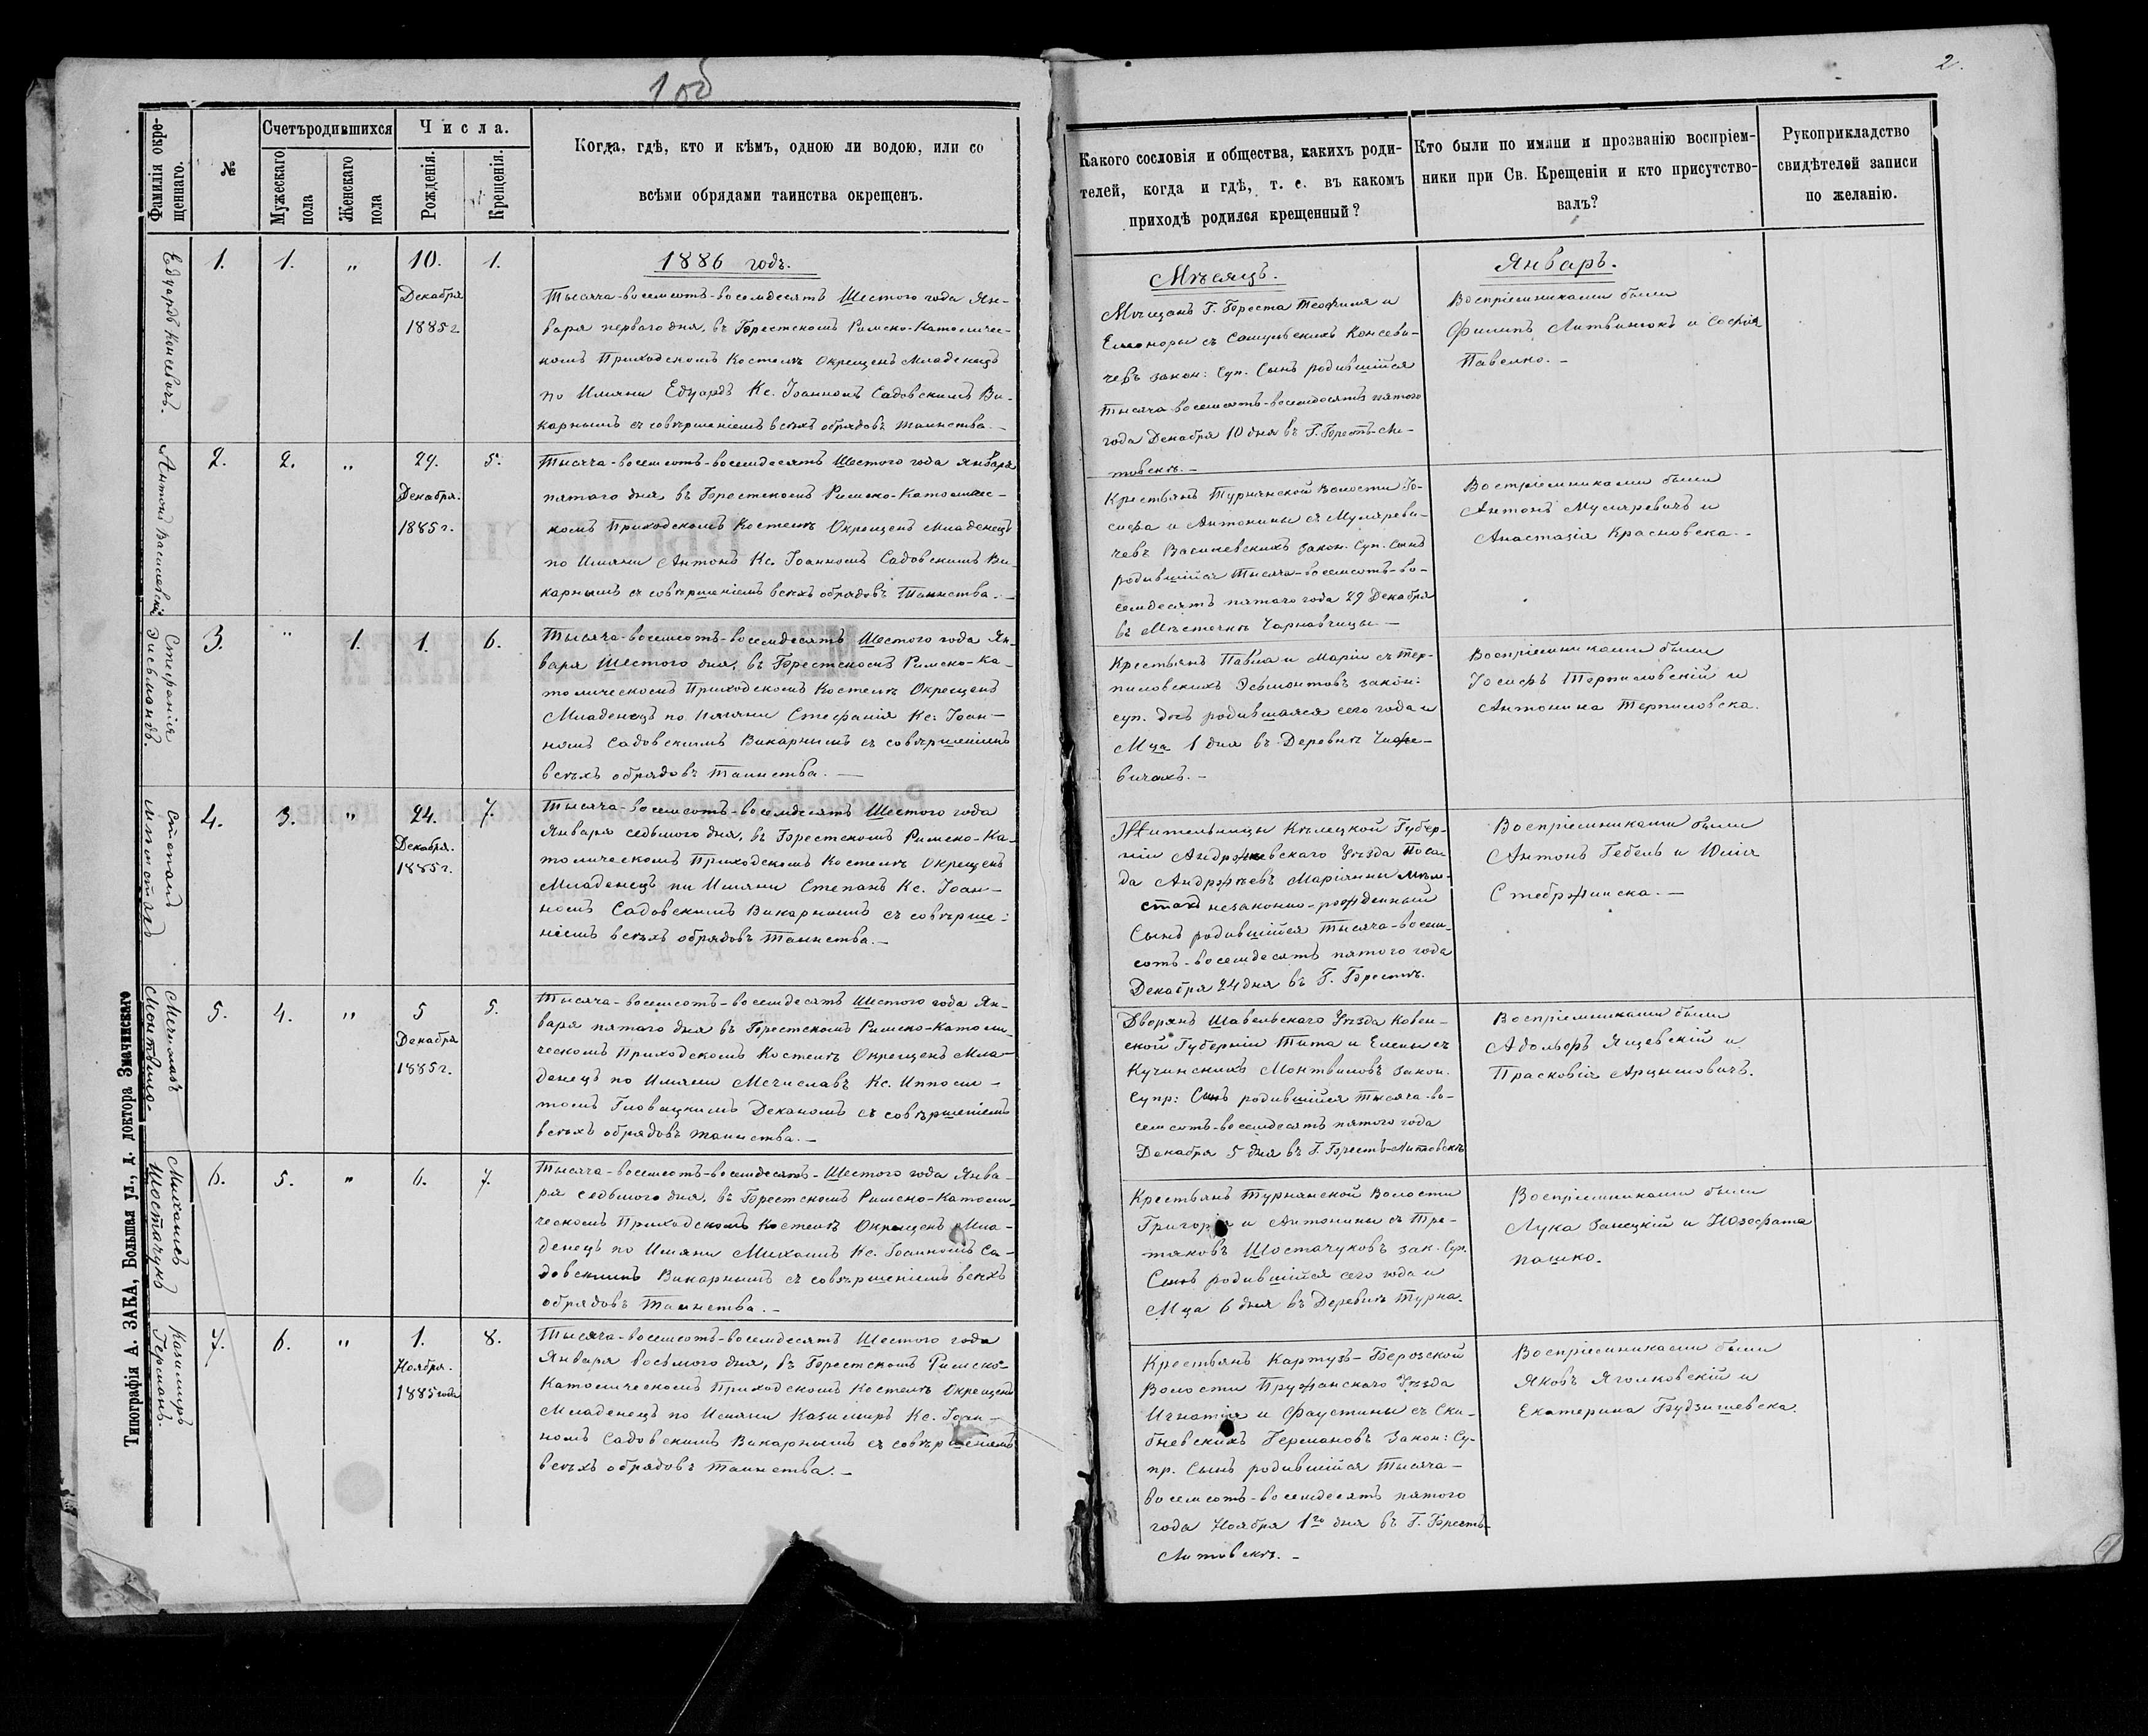 1об
2.
Фамилія окрещеннаго.
№
Счетъ родившихся
Мужескаго пола
Женскаго пола
Числа.
Рожденія.
Крещенія.
Когда, гдѣ, кто и кѣмъ, одною ли водою, или со
всѣми обрядами таинства окрещенъ.
Какого сословія и общества, какихъ роди-
телей, когда и гдѣ, т. е. въ какомъ
приходѣ родился крещенный?
Кто были по имяни и прозванію воспріем-
ники при Св. Крещеніи и кто присутство-
валъ?
Рукоприкладство
свидѣтелей записи
по желанію.
Едуардъ Консевичъ.
1. 1. „ 10. 1.
Декабря
1885 г.
1886 годъ.
Тысяча-восемсотъ-восемдесятъ Шестого года Ян-
варя перваго дня, въ Брестскомъ Римско-Католичес-
комъ Приходскомъ Костелѣ Окрещенъ Младенецъ
по Имяни Едуардъ Кс. Іоанномъ Садовскимъ Ви-
карнымъ съ совѣршеніемъ всѣхъ обрядовъ таинства.-
Мѣсяцъ.
Мѣщанъ Г. Бреста Теофиля и
Елеоноры съ Сацевскихъ Консеви-
чевъ закон: Суп. Сынъ родившійся
тысяча восемсотъ-восемдесятъ пятого
года Декабря 10 дня въ Г. Брестъ-Ли-
товскѣ.-
Январь.
Воспріемниками были
Филипъ Литвинюкъ и Софія
Павелко.-
Антонъ Василевскій
2. 2. „ 29. 5.
Декабря.
1885 г.
Тысяча-восемсотъ-восемдесятъ Шестого года Января
пятаго дня въ Брестскомъ Римско-Католичес-
комъ Приходскомъ Костелѣ Окрещенъ Младенецъ
по Имяни Антонъ Кс. Іоанномъ Садовскимъ Ви-
карнымъ съ совѣршеніемъ всѣхъ обрядовъ Таинства.-
Крестьянъ Турнянской Волости Іо-
сифа и Антонины съ Муляреви-
чевъ Василевскихъ закон. Суп. Сынъ
родившійся Тысяча-восемсотъ-во-
семдесятъ пятаго года 29 Декабря
въ Мѣстечкѣ Чарнавчицы-
Воспріемниками были
Антонъ Муляревичъ и
Анастазія Красновска.-
Стефанія
Эисьмонтъ.
3. „ 1. 1. 6.
Тысяча-восемсотъ-восемдесятъ Шестого года Ян-
варя Шестого дня, въ Брестскомъ Римско-Ка-
толическомъ Приходскомъ Костелѣ Окрещенъ
Младенецъ по Имяни Стефанія Кс: Іоан-
номъ Садовскимъ Викарнымъ съ совѣршеніемъ
всѣхъ обрядовъ Таинства.-
Крестьянъ Павла и Маріи съ Тер-
пиловскихъ Эсьмонтовъ закон:
суп. дочь родившаяся сего года и
Мца 1 дня въ Деревнѣ
вичахъ.-
Воспріемниками были
Іосифъ Терпиловскій и
Антонина Терпиловска.
Степанъ
4. 3. „ 24. 7.
Декабря.
1885 г.
Тысяча-восемсотъ-восемдесятъ Шестого года
Января седьмого дня, въ Брестскомъ Римско-Ка-
толическомъ Приходскомъ Костелѣ Окрещенъ
Младенецъ по Имяни Степанъ Кс. Іоан-
номъ Садовскимъ Викарнымъ съ совѣрше-
ніемъ всѣхъ обрядовъ Таинства.-
Жительницы Кѣлецкой Губер-
ніи Андрѣевскаго Уѣзда Поса-
да Андржеевъ Маріянны
незаконно-рожденный
Сынъ родившійся Тысяча-восем-
сотъ-восемдесятъ пятого года
Декабря 24 дня въ Г. Брестѣ.
Воспріемниками были
Антонъ Гебель и Юлія
Стебржинска.-
Мечиславъ
Монтвилъ.
5. 4. „ 5 5.
Декабря
1885 г.
Тысяча-восемсотъ-восемдесятъ Шестого года Ян-
варя пятаго дня въ Брестскомъ Римско-Католи-
ческомъ Приходскомъ Костелѣ Окрещенъ Мла-
денецъ по Имяни Мечиславъ Кс. Ипполи-
томъ Гловацкимъ Деканомъ съ совѣршеніемъ
всѣхъ обрядовъ таинства.-
Дворянъ Шавельскаго Уѣзда Ковен-
ской Губерніи Тита и Елены съ
Кучинскихъ Монтвиловъ закон.
Супр: Сынъ родившійся тысяча-во-
семсотъ-восемдесятъ пятого года
Декабря 5 дня въ Г. Брестъ-Литовскѣ
Воспріемниками были
Адольфъ Ящевскій и
Прасковія Арцымовичъ.
Михаилъ
Шостачукъ
6. 5. „ 6. 7.
Тысяча-восемсотъ-восемдесятъ-Шестого года Янва-
ря седьмого дня, въ Брестскомъ Римско-Католи-
ческомъ Приходскомъ Костелѣ Окрещенъ Мла-
денецъ по Имяни Михаилъ Кс. Іоанномъ Са-
довскимъ Викарнымъ съ совѣршеніемъ всѣхъ
обрядовъ Таинства.-
Крестьянъ Турнянской Волости
Григорія и Антонины съ Тре-
тяковъ Шостачуковъ зак. Суп.
Сынъ родившійся сего года и
Мца 6 дня въ Деревнѣ Турна.
Воспріемниками были
Лука Занецкій и Юзефата
Пашко.
Казимиръ
Германъ.
7. 6. „ 1. 8.
Ноября.
1885 года
Тысяча-восемсотъ-восемдесятъ Шестого года
Января восьмого дня, въ Брестскомъ Римско-
Католическомъ Приходскомъ Костелѣ Окрещенъ
Младенецъ по Имяни Казимиръ Кс. Іоан-
номъ Садовскимъ Викарнымъ съ совѣршеніемъ
всѣхъ обрядовъ таинства.-
Крестьянъ Картузъ-Березской
Волости Пружанскаго Уѣзда
Игнатія и Фаустины съ Ски-
бневскихъ Германовъ Закон: Су-
пр. Сынъ родившійся Тысяча-
восемсотъ-восемдесятъ пятого
года Ноября 1го дня въ Г. Брестъ-
Литовскѣ.-
Воспріемниками были
Яковъ Яголковскій и
Екатерина Будзишевска.
Типографія А. ЗАКА, Большая ул., д. доктора Значинскаго